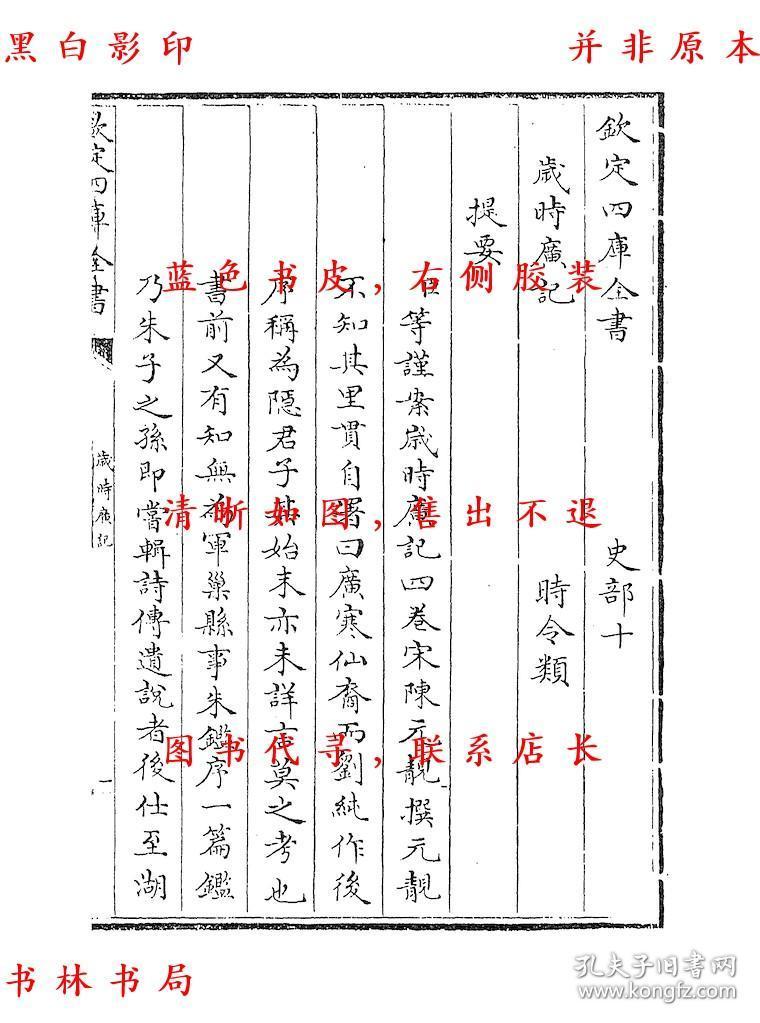 黑白影印
并非原本
欽定四庫全書
史部十
歲時廣記
時令類
提要
等謹案歲時廣記四卷宋陳元靚撰元靚
不知其里貫自署曰廣寒仙裔而劉純作後
序稱為隱君子其始末亦未詳言莫之考也
書前又有知無為軍巢縣事朱鑑序一篇鑑
乃朱子之孫即嘗輯詩傳遺說者後仕至湖
欽定四庫全書
歲時廣記
一
蓝色书皮,右侧胶装
清晰如图,售出不退
图书代寻,联系店长
书林书局
孔夫子旧书网
www.kongfz.com